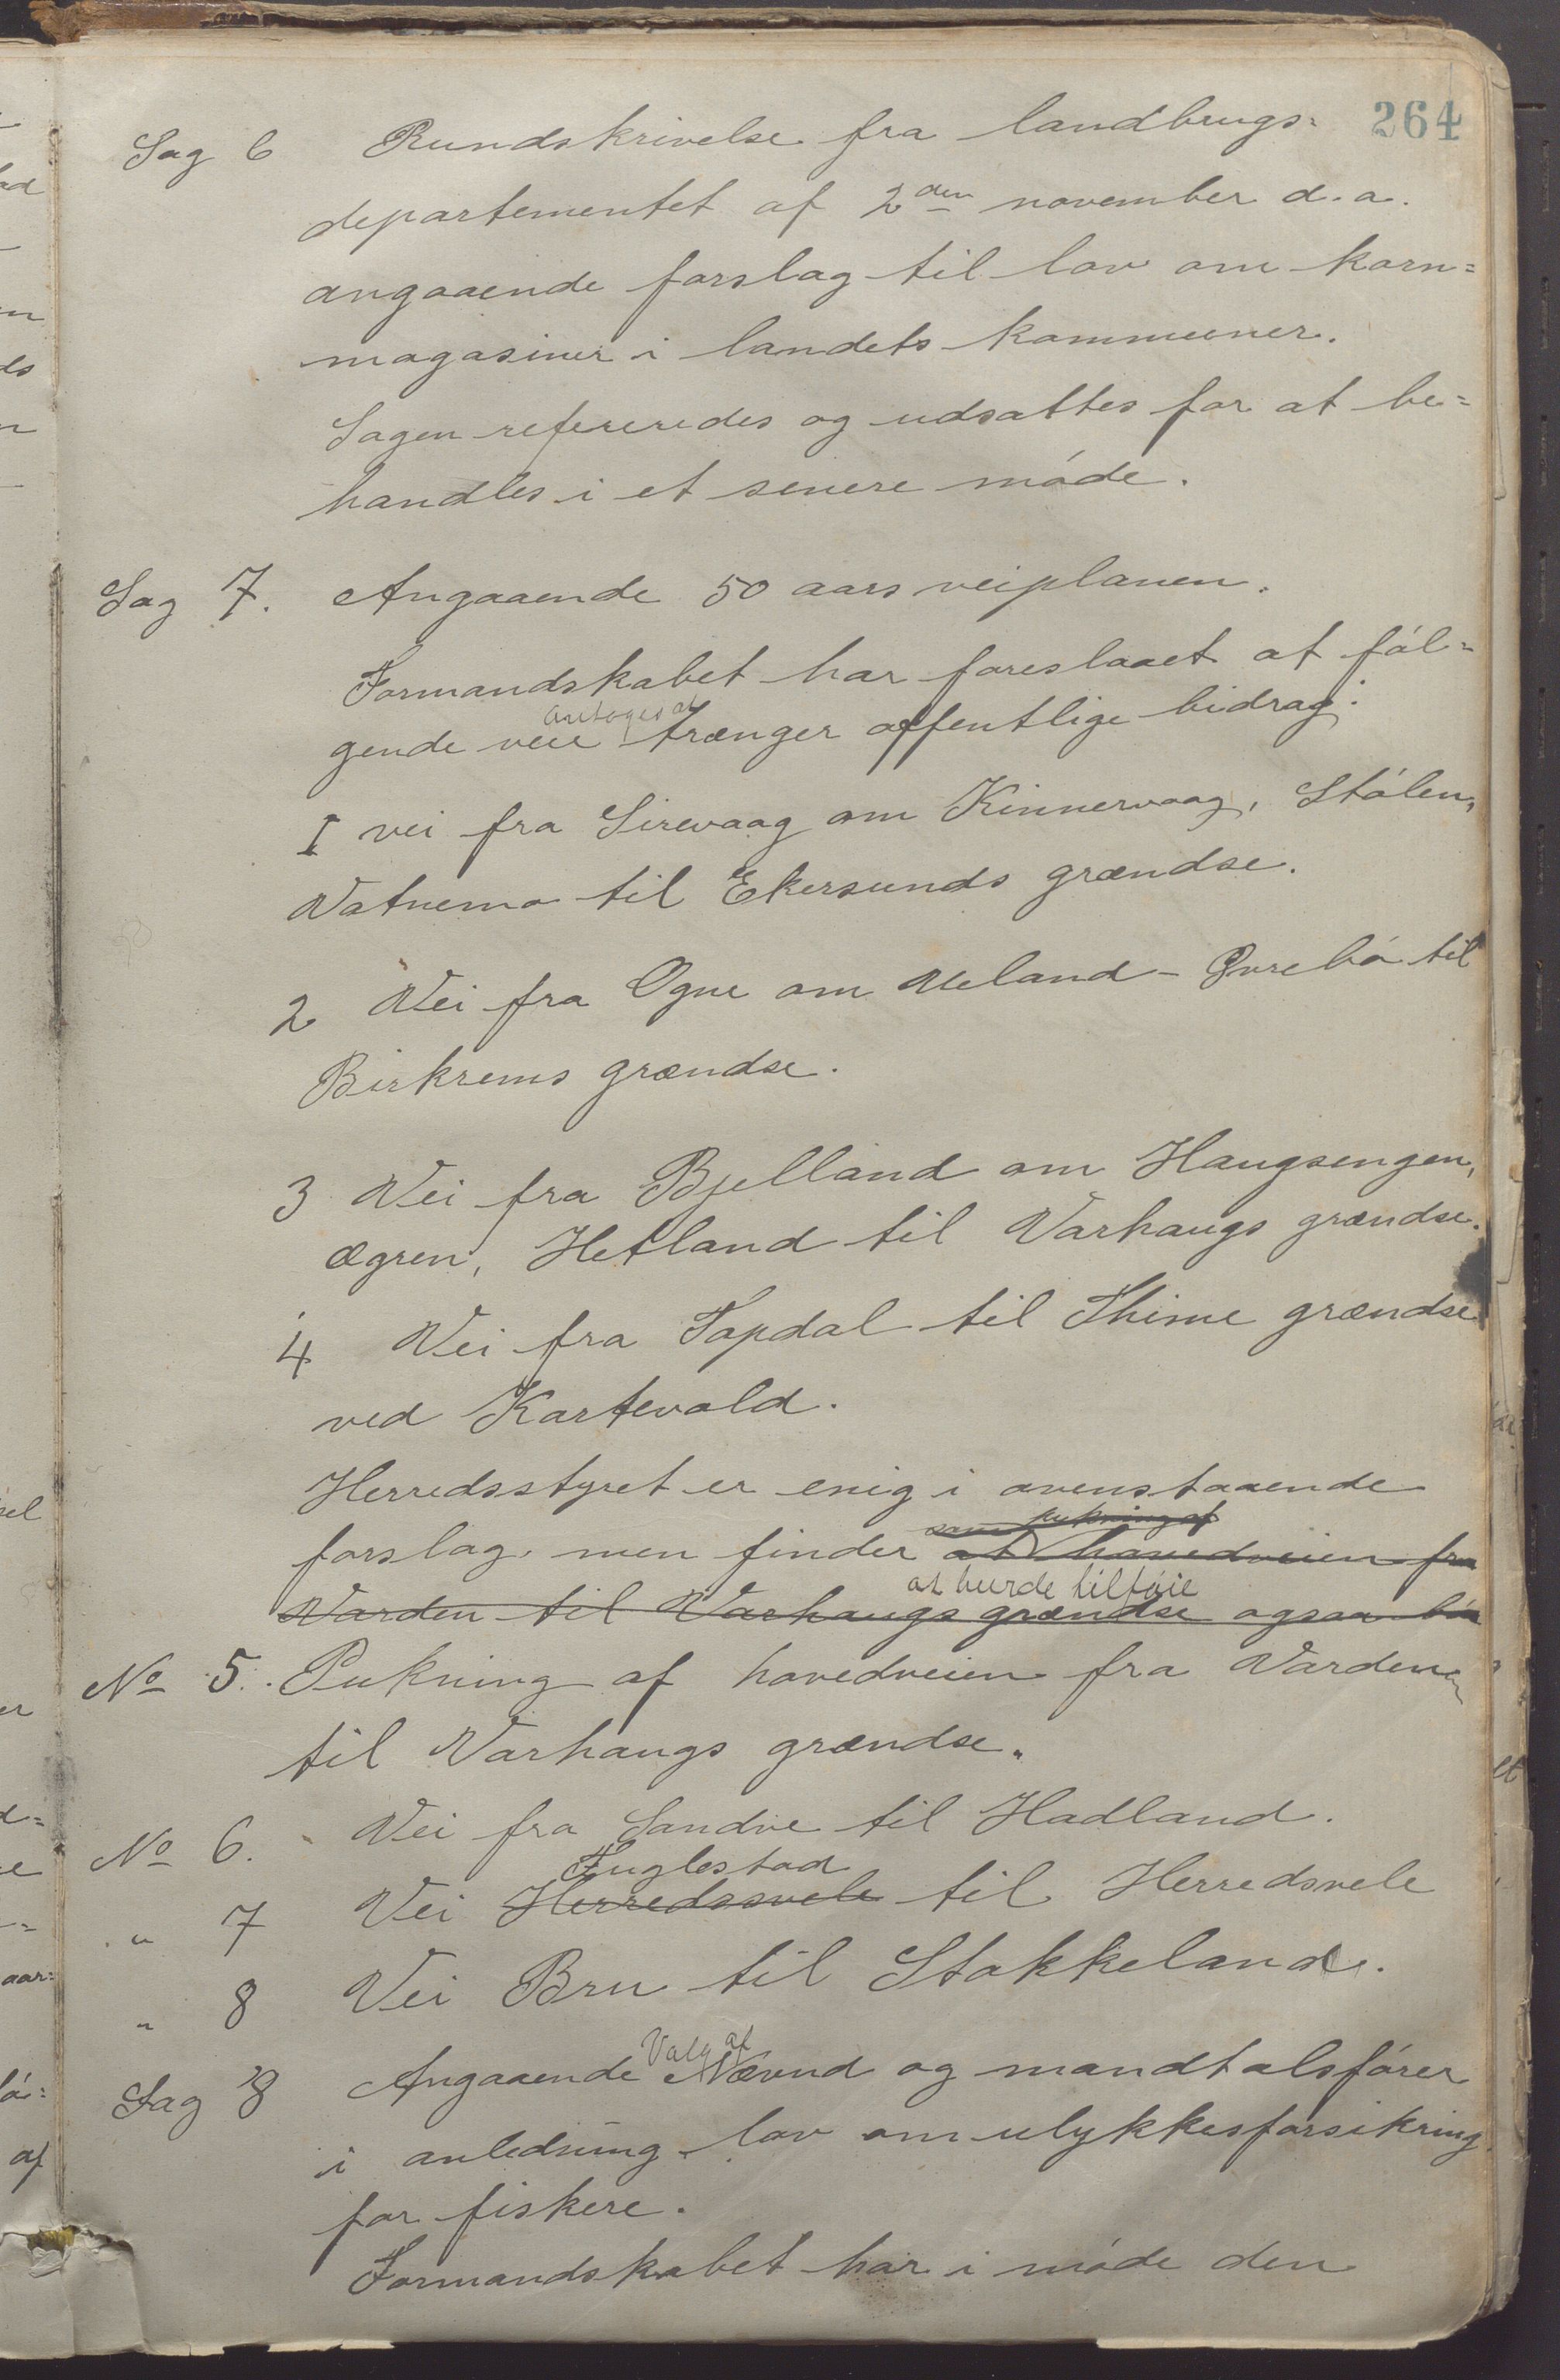 264
Sag 6 Rundskrivelse fra landbrugs=
departementet af 2den november d.a.
angaaende forslag til lov om korn=
magasiner i landets kommuner.
Sagen refereredes og udsattes for at be=
handles i et senere møde.
Sag 7. Angaaende 50 aars veiplanen.
Formandskabet har foreslaaet at føl=
antages at
gende veie trænger offentlige bidrag:
I vei fra Sirevaag om Kinnervaag, Stølen,
Vatnemo til Ekersunds grændse.
2 Vei fra Ogne om Ueland - Øvrebø til
Birkrems grændse.
3 Vei fra Bjelland om Haugsengen,
Øgren, Hetland til Varhaugs grændse.
4 Vei fra Tapdal til Thime grændse
ved Kartevold.
Herredsstyret er enig i ovenstaaende
som pukning af
forslag, men finder at hovedveien fra
at burde tilføie
Varden til Varhaugs grændse ogsaa bør
No 5. Pukning af hovedveien fra Varden
til Varhaugs grændse.
No 6. Vei fra Sandve til Hadland.
Fuglestad
" 7 Vei Herredssvele til Herredsvele
" 8 Vei Bru til Stokkeland.
Valg af
Sag 8 Angaaende Nævnd og mandtalsfører
i anledning lov om ulykkesforsikring
for fiskere.
Formandskabet har i møde den